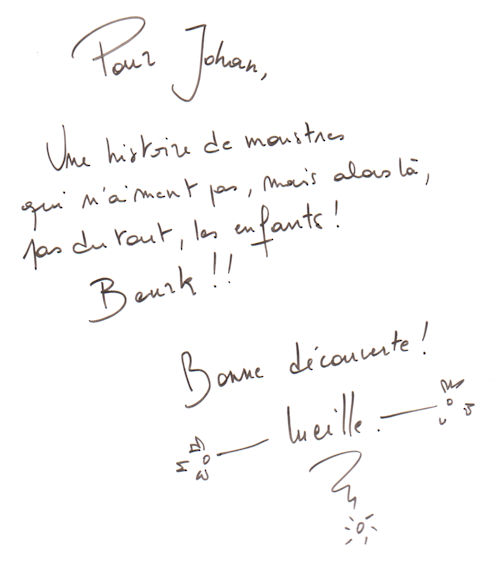 Pour Johan,
Une histoire de monstres
qui n'aiment pas, mais alors là,
pas du tout, les enfants !
Beurk !!
Bonne découverte !
Lucille.